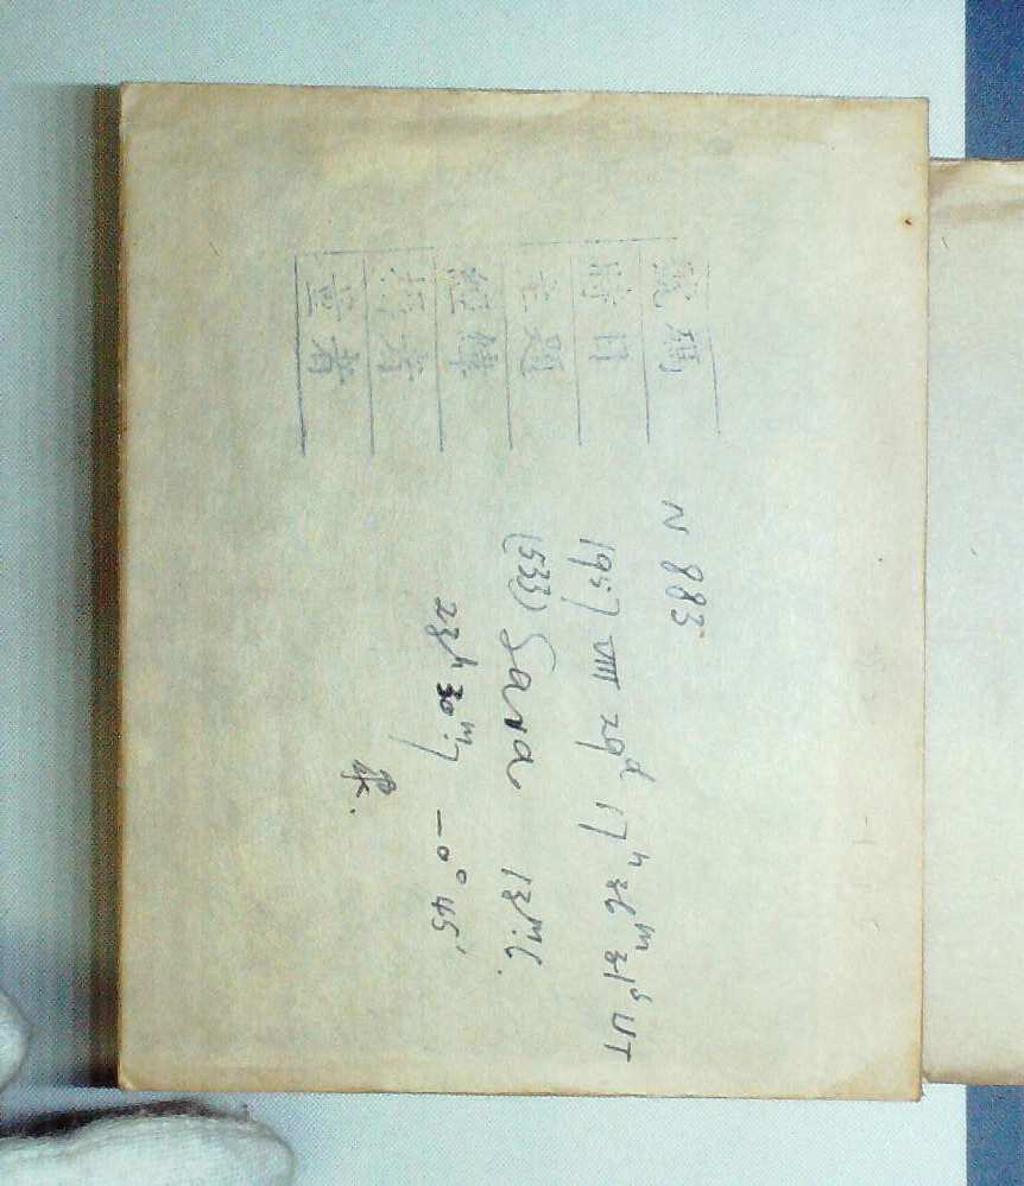 號碼 N 883
時日 1957 VIII 29ᵈ 17ʰ 36ᵐ 31ˢ UT
主題 (533) Sara 13ᵐ.6
經緯 23ʰ 30ᵐ.7 −0° 45'